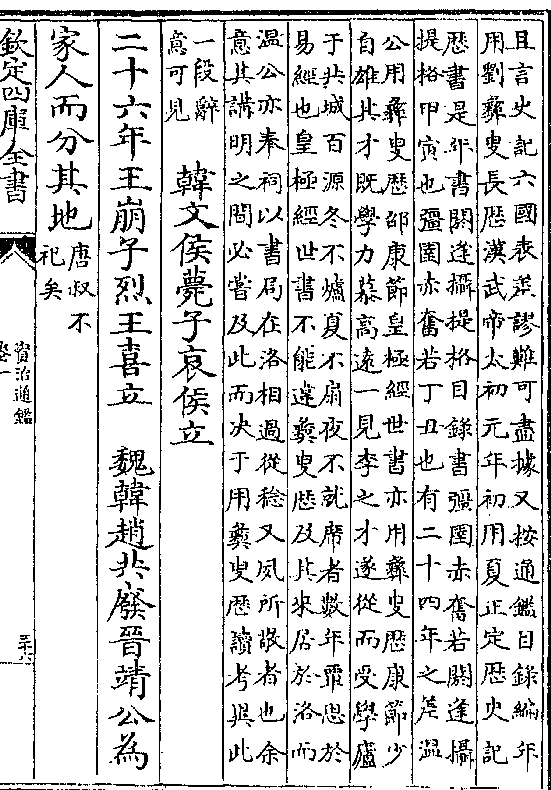 且言史記六國表差謬難可盡據又按通鑑目錄編年
用劉彝叟長歷漢武帝太初元年初用夏正定歷史記
歷書是年書閼逢攝提格目錄書彊圉赤奮若閼逢攝
提格甲寅也彊圉赤奮若丁丑也有二十四年之差溫
公用彝叟歷邵康節皇極經世書亦用彝叟歷康節少
自雄其才既學力慕高遠一見李之才遂從而受學廬
于共城百源冬不爐夏不扇夜不就席者數年覃思於
易經也皇極經世書不能違彝叟歷及其來居於洛而
溫公亦奉祠以書局在洛相過從稔又夙所敬者也余
意其講明之間必嘗及此而决于用彝叟歷讀考異此
一段辭
意可見
韓文侯薨子哀侯立
二十六年王崩子烈王喜立 魏韓趙共廢晉靖公為
家人而分其地
唐叔不
祀矣
欽定四庫全書
資治通鑑
卷一
三十六